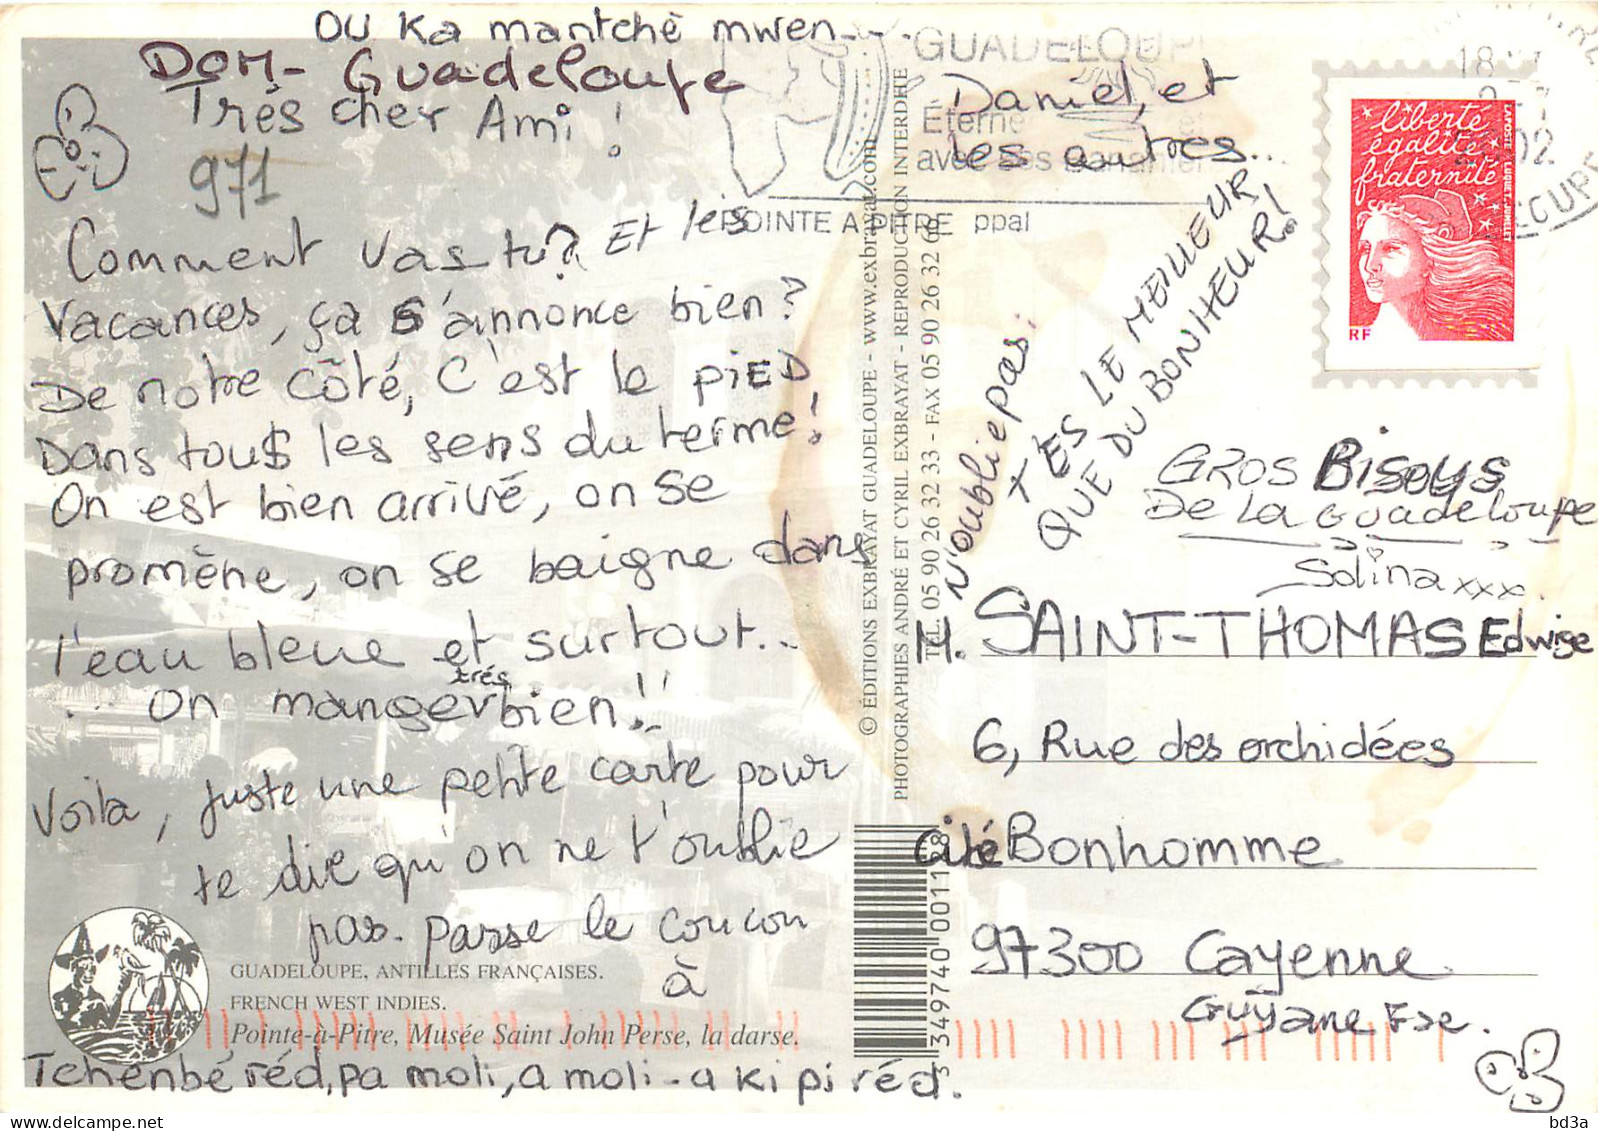 OU Ka mantchè mwen....
DOM- Guadeloupe
Très cher Ami !
971
Comment vas tu? Et les
vacances, ça s'annonce bien?
De notre côté, c'est le PIED
Dans tous les sens du terme!
On est bien arrivé, on se
promène, on se baigne dans
l'eau bleue et surtout...
... On manger très bien!!
Voila, juste une petite carte pour
te dire qu'on ne t'oublie
pas. Passe le coucou
à
Daniel, et
les autres...
GUADELOUPE, ANTILLES FRANÇAISES.
FRENCH WEST INDIES.
Pointe-à-Pitre, Musée Saint John Perse, la darse.
Tchenbé réd, pa moli, a moli - a ki pi réd.
© ÉDITIONS EXBRAYAT GUADELOUPE - www.exbrayat.com
PHOTOGRAPHIES ANDRÉ ET CYRIL EXBRAYAT - REPRODUCTION INTERDITE
TEL. 05 90 26 32 33 - FAX 05 90 26 32 66
3 349740 001188
GUADELOUPE
POINTE A PITRE ppal
18
02
liberté
égalité
fraternité
RF
LAPOSTE
LUQUET, JUMELET
N'oublie pas:
T'ES LE MEILLEUR
QUE DU BONHEUR!
GROS Bisous
De La Guadeloupe
Solina xxx
M. SAINT-THOMAS Edwige
6, Rue des orchidées
Cité Bonhomme
97300 Cayenne
Guyane Fse.
bd3a